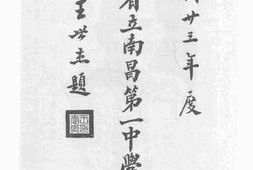 廿三年度
省立南昌第一中學
王世杰題